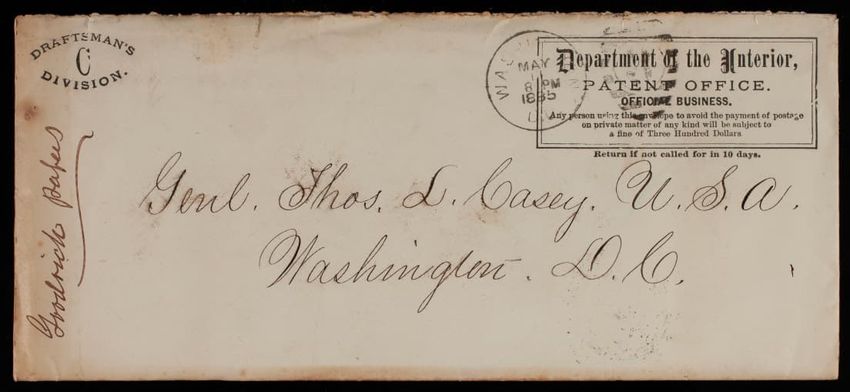 DRAFTSMAN'S
C
DIVISION.
WASH
MAY
8 PM
1885
D.
Department of the Interior,
PATENT OFFICE.
OFFICIAL BUSINESS.
Any person using this envelope to avoid the payment of postage
on private matter of any kind will be subject to
a fine of Three Hundred Dollars
Return if not called for in 10 days.
Genl. Thos. L. Casey. U. S. A.
Washington. D. C.
Goodrich papers